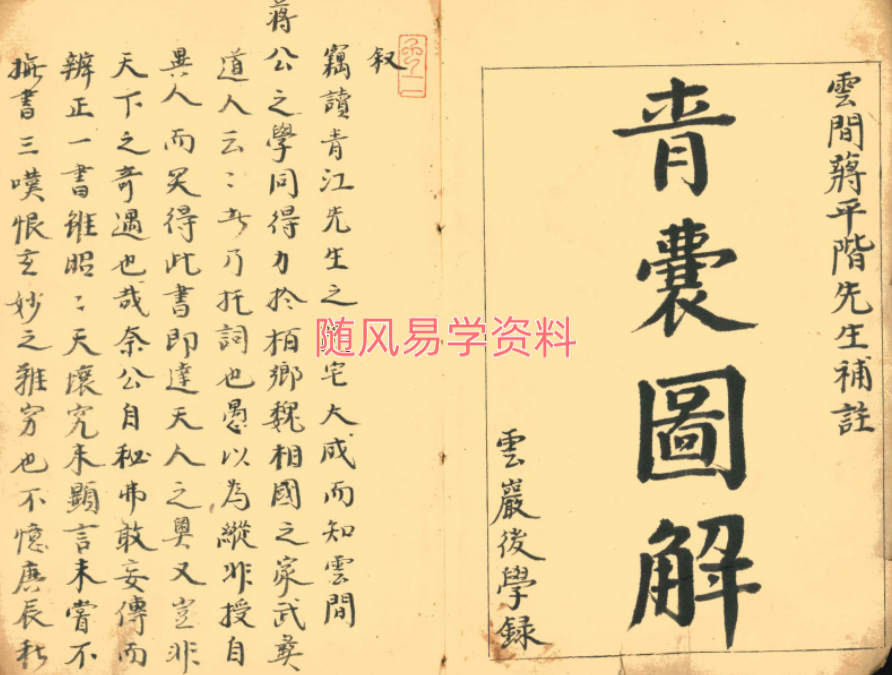 雲間蔣平階先生補註
青囊圖解
雲巖後學録
叙
竊讀青江先生之宅大成而知雲間
蔣公之學同得力於栢鄉魏相國之家武夷
道人云〻者乃托詞也愚以為縱非授自
異人而究得此書即達天人之奥又豈非
天下之奇遇也哉奈公自秘弗敢妄傳而
辨正一書雖昭〻天壤究未顯言未嘗不
撫書三嘆恨玄妙之難穷也不憶庚辰秋
随风易学资料